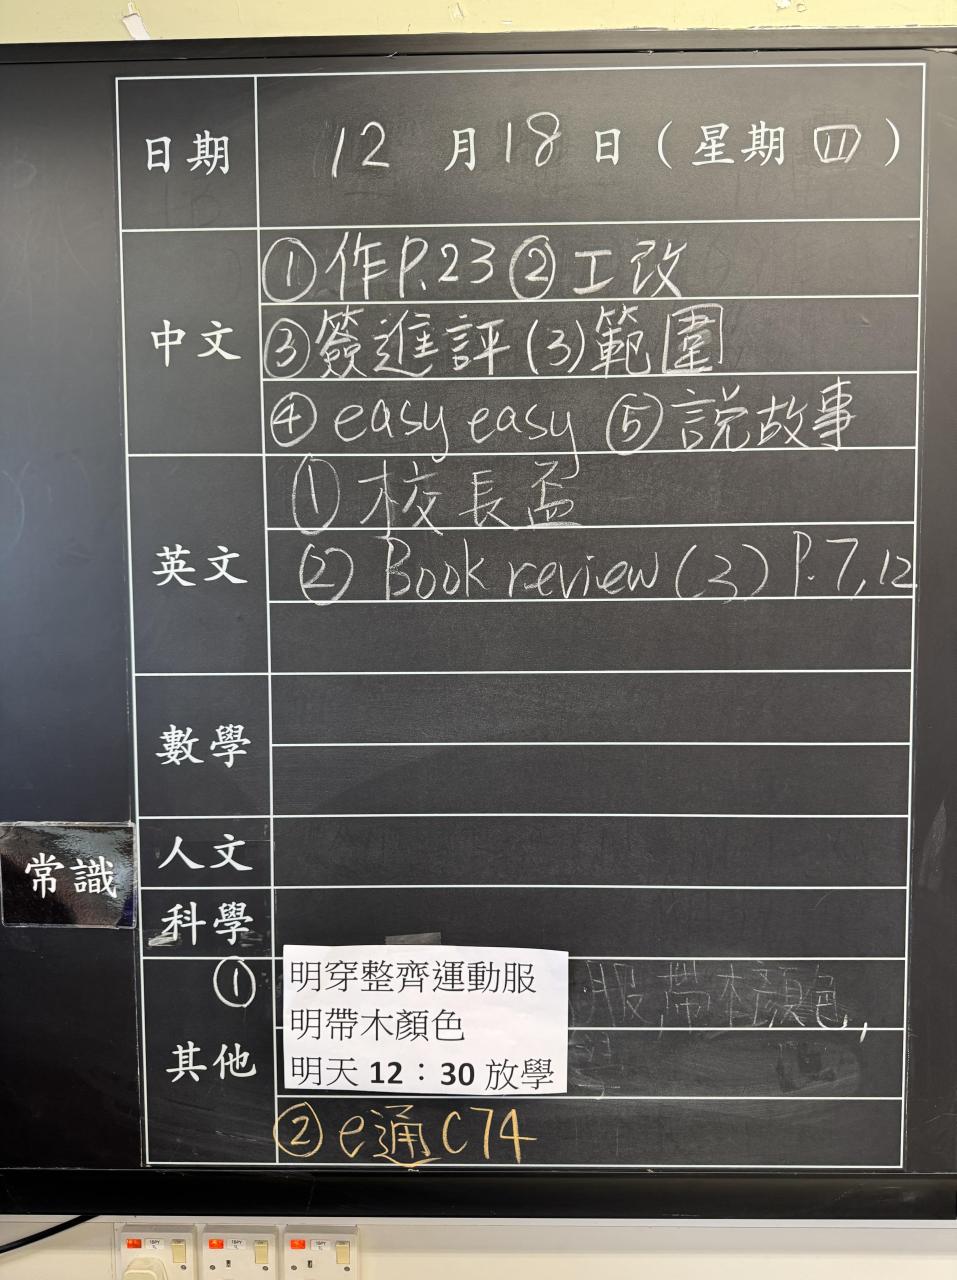 日期 12 月 18 日（星期 四）
中文
①作P.23 ②工改
③簽進評(3)範圍
④ easy easy ⑤說故事
英文
① 校長盃
② Book review (3) P.7,12
數學
人文
常識
科學
其他
①
明穿整齊運動服
明帶木顏色
明天 12：30 放學
服,帶木顏色,
② e通C74